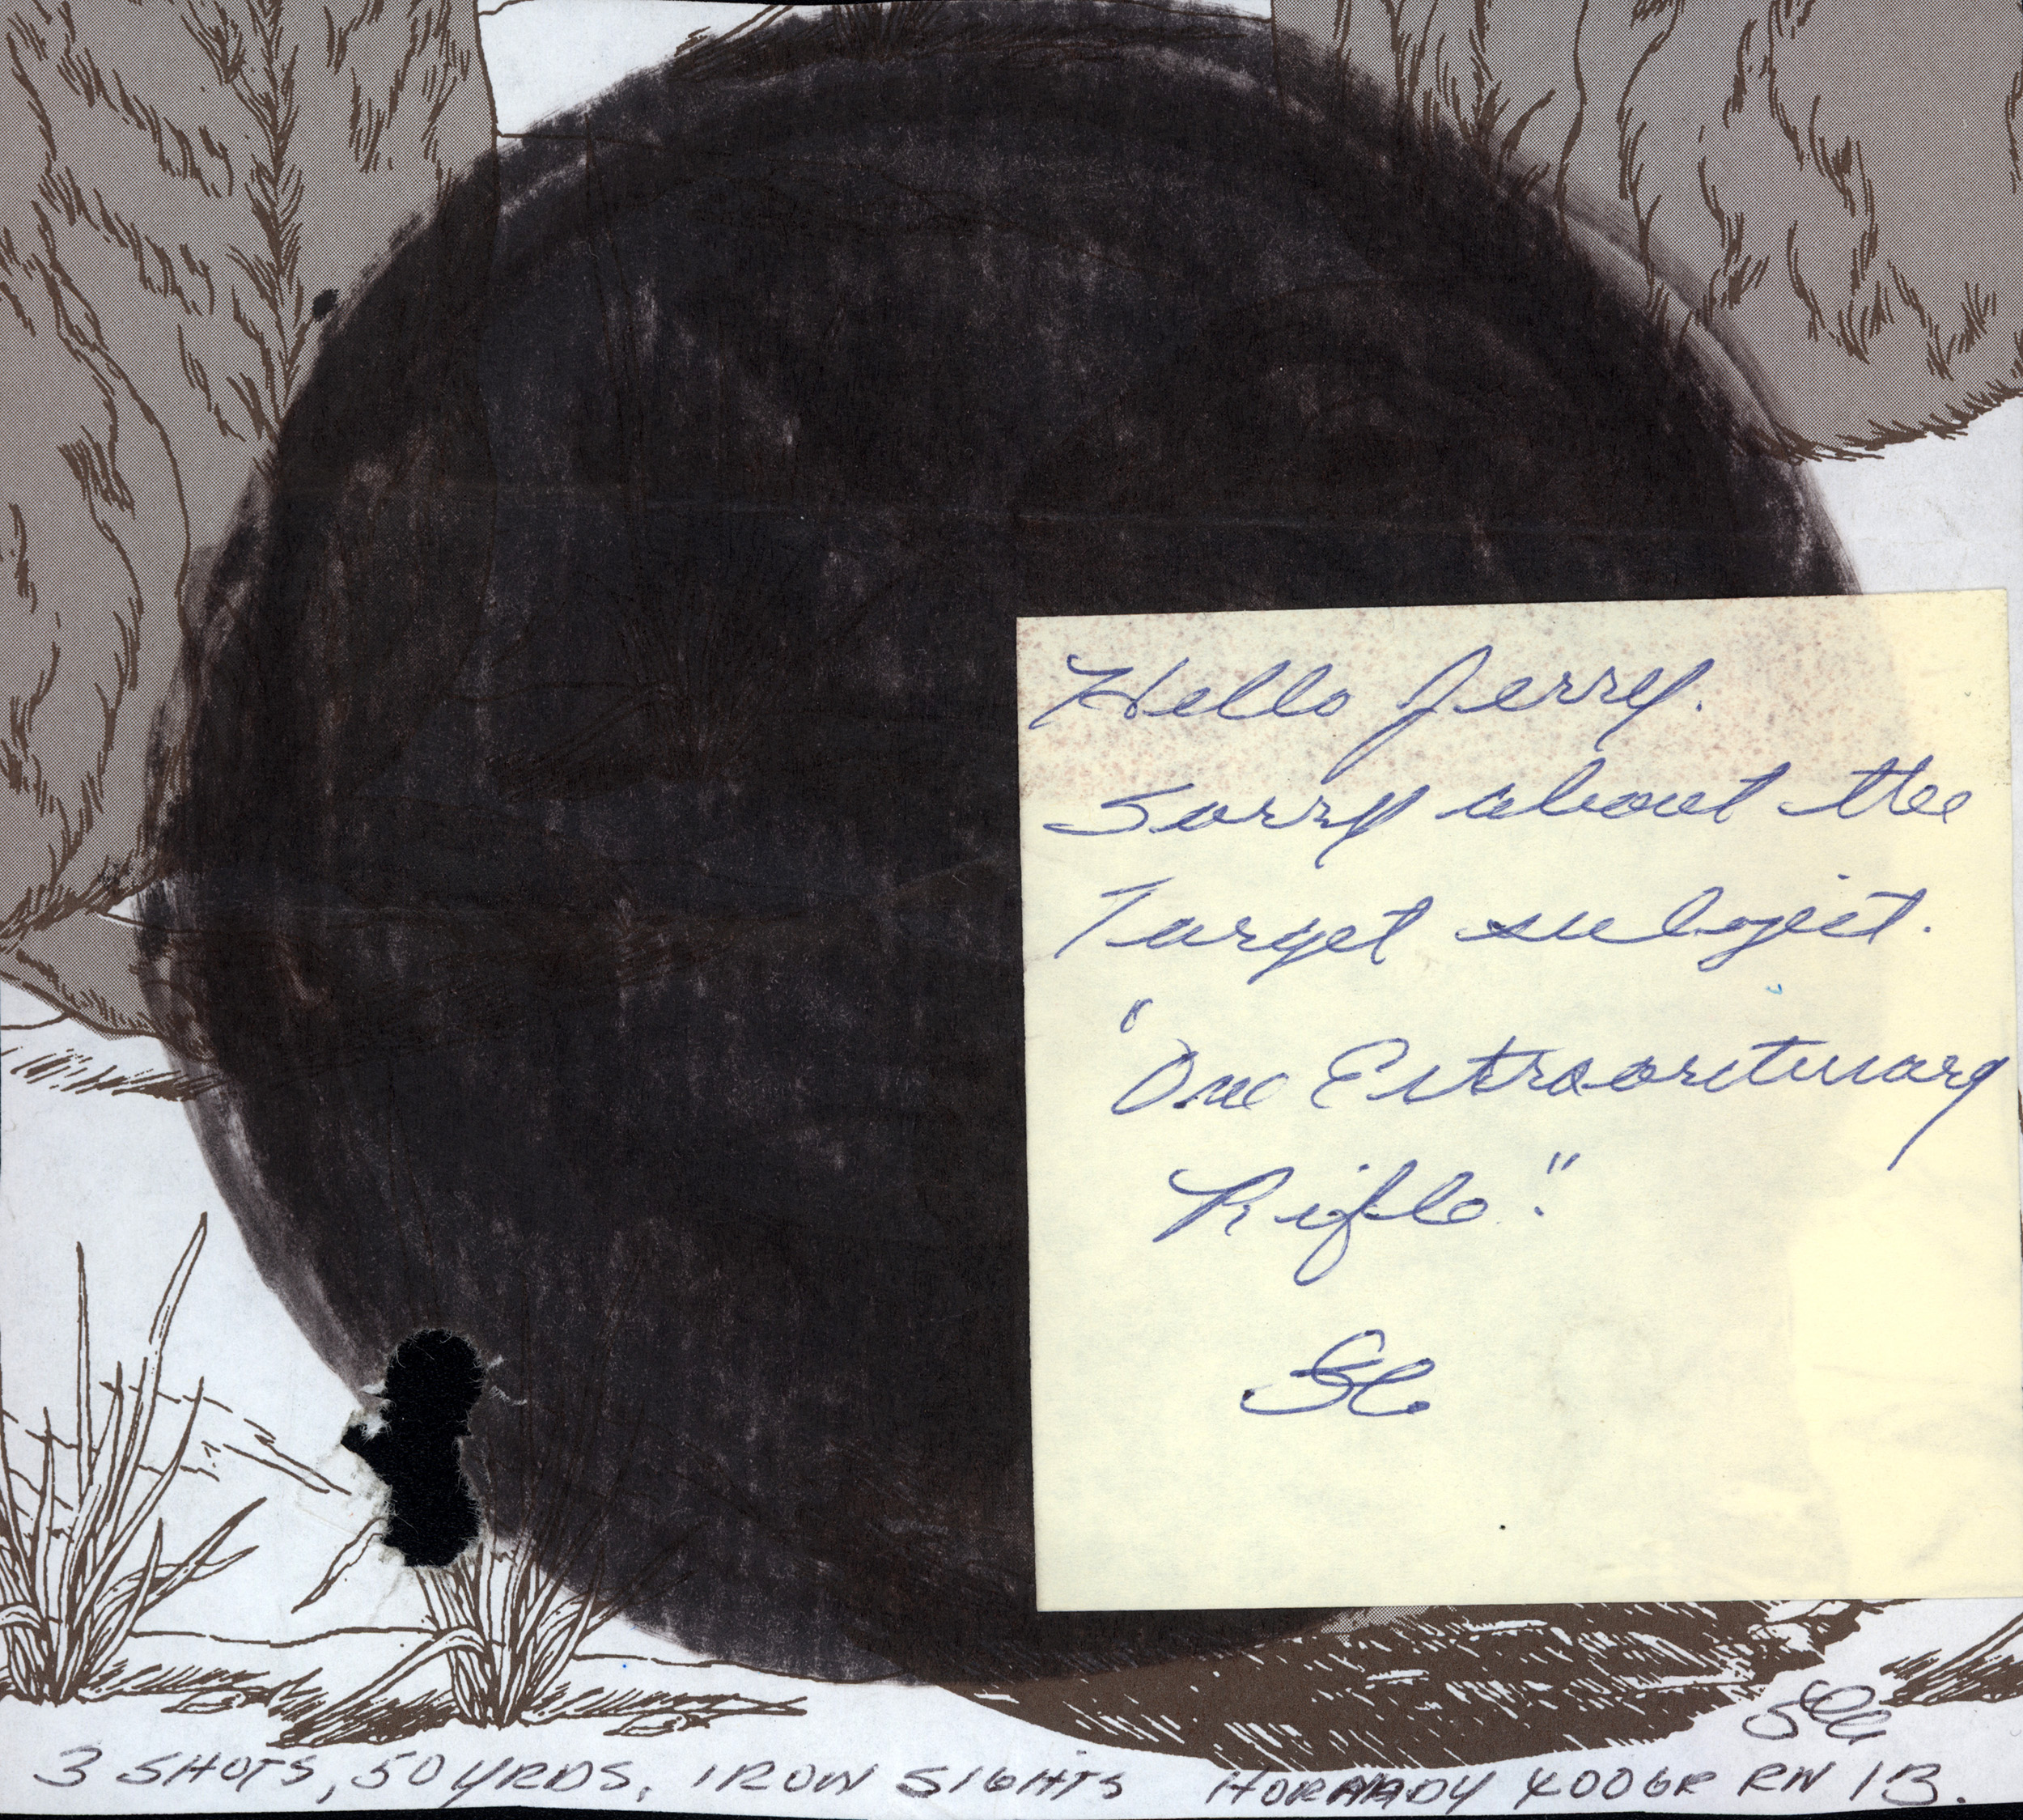 Hello Jerry.
Sorry about the
Target subject.
"One Extraoritinary
Rifle."
3 SHOTS, 50 YRDS, IRON SIGHTS HORNADY 400GR RN 1B.